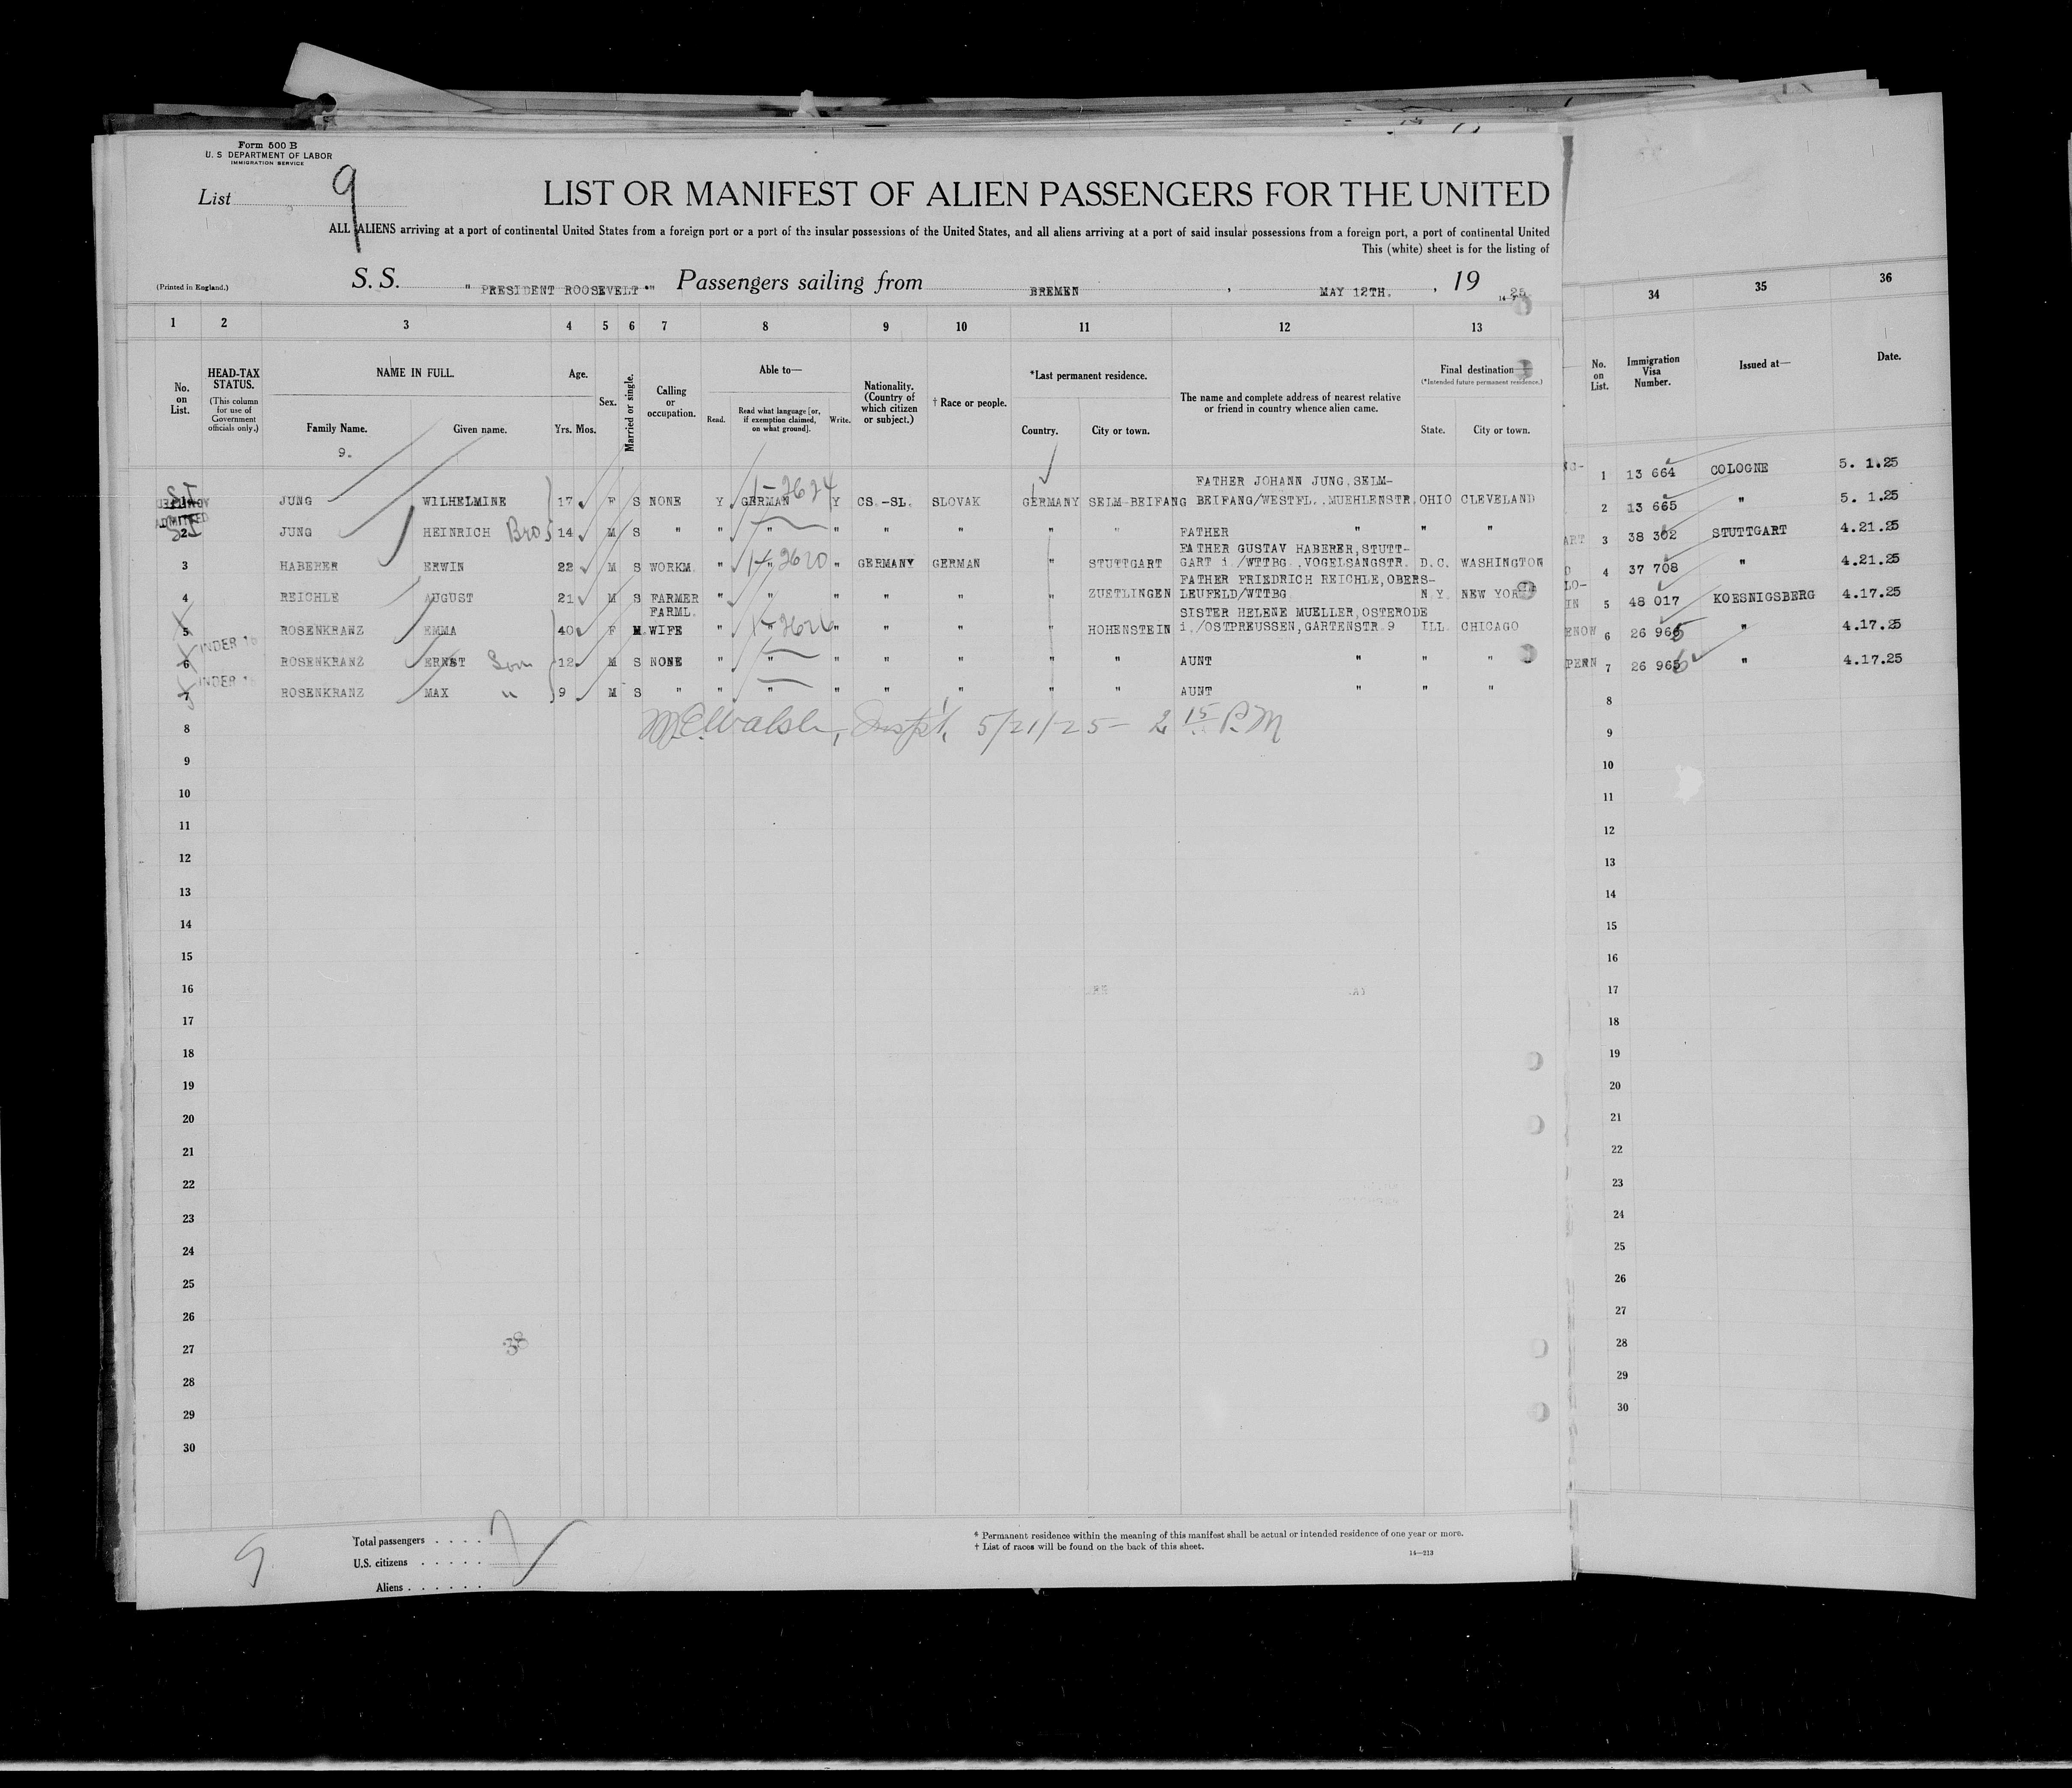 Form 500 B
U. S DEPARTMENT OF LABOR
IMMIGRATION SERVICE
List 9
LIST OR MANIFEST OF ALIEN PASSENGERS FOR THE UNITED
ALL ALIENS arriving at a port of continental United States from a foreign port or a port of the insular possessions of the United States, and all aliens arriving at a port of said insular possessions from a foreign port, a port of continental United
This (white) sheet is for the listing of
(Printed in England.)
S. S. " PRESIDENT ROOSEVELT " Passengers sailing from BREMEN , MAY 12TH. , 19 25.
1 2 3 4 5 6 7 8 9 10 11 12 13
34 35 36
No. on List.
HEAD-TAX STATUS.
(This column for use of Government officials only.)
NAME IN FULL.
Family Name. Given name.
9.
Age.
Yrs. Mos.
Sex.
Married or single.
Calling or occupation.
Able to—
Read. Read what language [or, if exemption claimed, on what ground]. Write.
Nationality. (Country of which citizen or subject.)
† Race or people.
*Last permanent residence.
Country. City or town.
The name and complete address of nearest relative or friend in country whence alien came.
Final destination
(*Intended future permanent residence.)
State. City or town.
No. on List.
Immigration Visa Number.
Issued at—
Date.
1-2624
FATHER JOHANN JUNG,SELM-
1 JUNG WILHELMINE 17 F S NONE Y GERMAN Y CS.-SL. SLOVAK GERMANY SELM-BEIFANG BEIFANG/WESTFL..MUEHLENSTR. OHIO CLEVELAND
ADMITTED
2 JUNG HEINRICH Bro 14 M S " " " " " " " " FATHER " " "
FATHER GUSTAV HABERER,STUTT-
3 HABERER ERWIN 22 M S WORKM. " " 1-2620 " GERMANY GERMAN " STUTTGART GART i./WTTBG.,VOGELSANGSTR. D.C. WASHINGTON
FATHER FRIEDRICH REICHLE,OBERS-
4 REICHLE AUGUST 21 M S FARMER " " " " " " ZUETLINGEN LEUFELD/WTTBG N.Y. NEW YORK
FARML. SISTER HELENE MUELLER,OSTERODE
5 ROSENKRANZ EMMA 40 F M WIFE " " 1-2626 " " " " HOHENSTEIN i./OSTPREUSSEN,GARTENSTR.9 ILL. CHICAGO
UNDER 16
6 ROSENKRANZ ERNST Son 12 M S NONE " " " " " " " AUNT " " "
UNDER 16
7 ROSENKRANZ MAX " 9 M S " " " " " " " " AUNT " " "
M.E. Walsh, Inspt, 5/21/25 - 2 15 P.M
8
9
10
11
12
13
14
15
16
17
18
19
20
21
22
23
24
25
26
27
38
28
29
30
1 13 664 COLOGNE 5. 1.25
2 13 665 " 5. 1.25
ART 3 38 302 STUTTGART 4.21.25
4 37 708 " 4.21.25
LO-
IN 5 48 017 KOESNIGSBERG 4.17.25
ENOW 6 26 965 " 4.17.25
PERN 7 26 966 " 4.17.25
8
9
10
11
12
13
14
15
16
17
18
19
20
21
22
23
24
25
26
27
28
29
30
9
Total passengers . . . . 7
U.S. citizens . . . . .
Aliens . . . . . .
* Permanent residence within the meaning of this manifest shall be actual or intended residence of one year or more.
† List of races will be found on the back of this sheet.
14—213